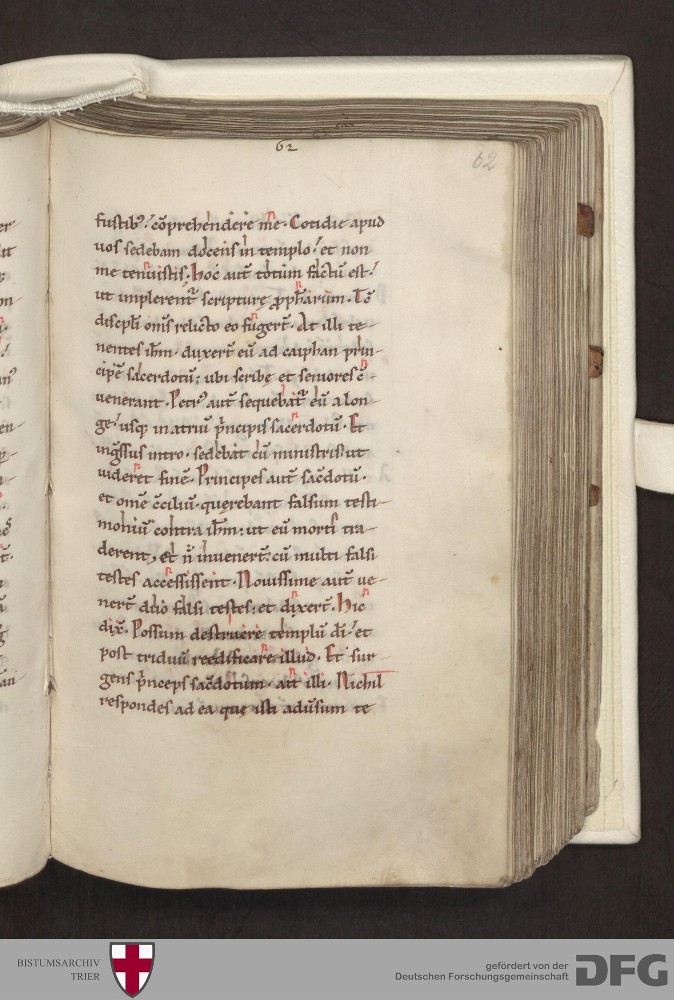 62
62
fustib᷒ cōprehendere me. Cotidie apud
uos sedebam docens in templo: et non
me tenuistis. Hoc aut̄ totum factum est:
ut implerent᷑ scripturę ꝓph̄arum. Tc̄
discipl̄i om̄s relicto eo fugert̄. At illi te-
nentes ih̄m. duxert̄ eū ad caiphan prin-
cipē sacerdotū: ubi scribę et seniores c̄-
uenerant. Petr᷒ aut̄ sequebat᷑ eū alon-
ge: usq; in atriū p̄ncipis sacerdotū. Et
inḡssus intro. sedebat cū ministris: ut
uideret finē. Principes aut̄ sac̄dotū.
et om̄e c̄ciliū. querebant falsum testi-
moniū contra ih̄m: ut eū morti tra-
derent, et n̄ inuenert̄: cū multi falsi
testes accessissent. Nouissime aut̄ ue-
nert̄ duo falsi testes: et dixert̄. Hic
dix̄. Possum destruere templū dī: et
post triduū reedificare illud. Et sur-
gens p̄nceps sac̄dotum. ait illi. Nichil
respondes ad ea que isti aduersum te
BISTUMSARCHIV
TRIER
gefördert von der
Deutschen Forschungsgemeinschaft
DFG